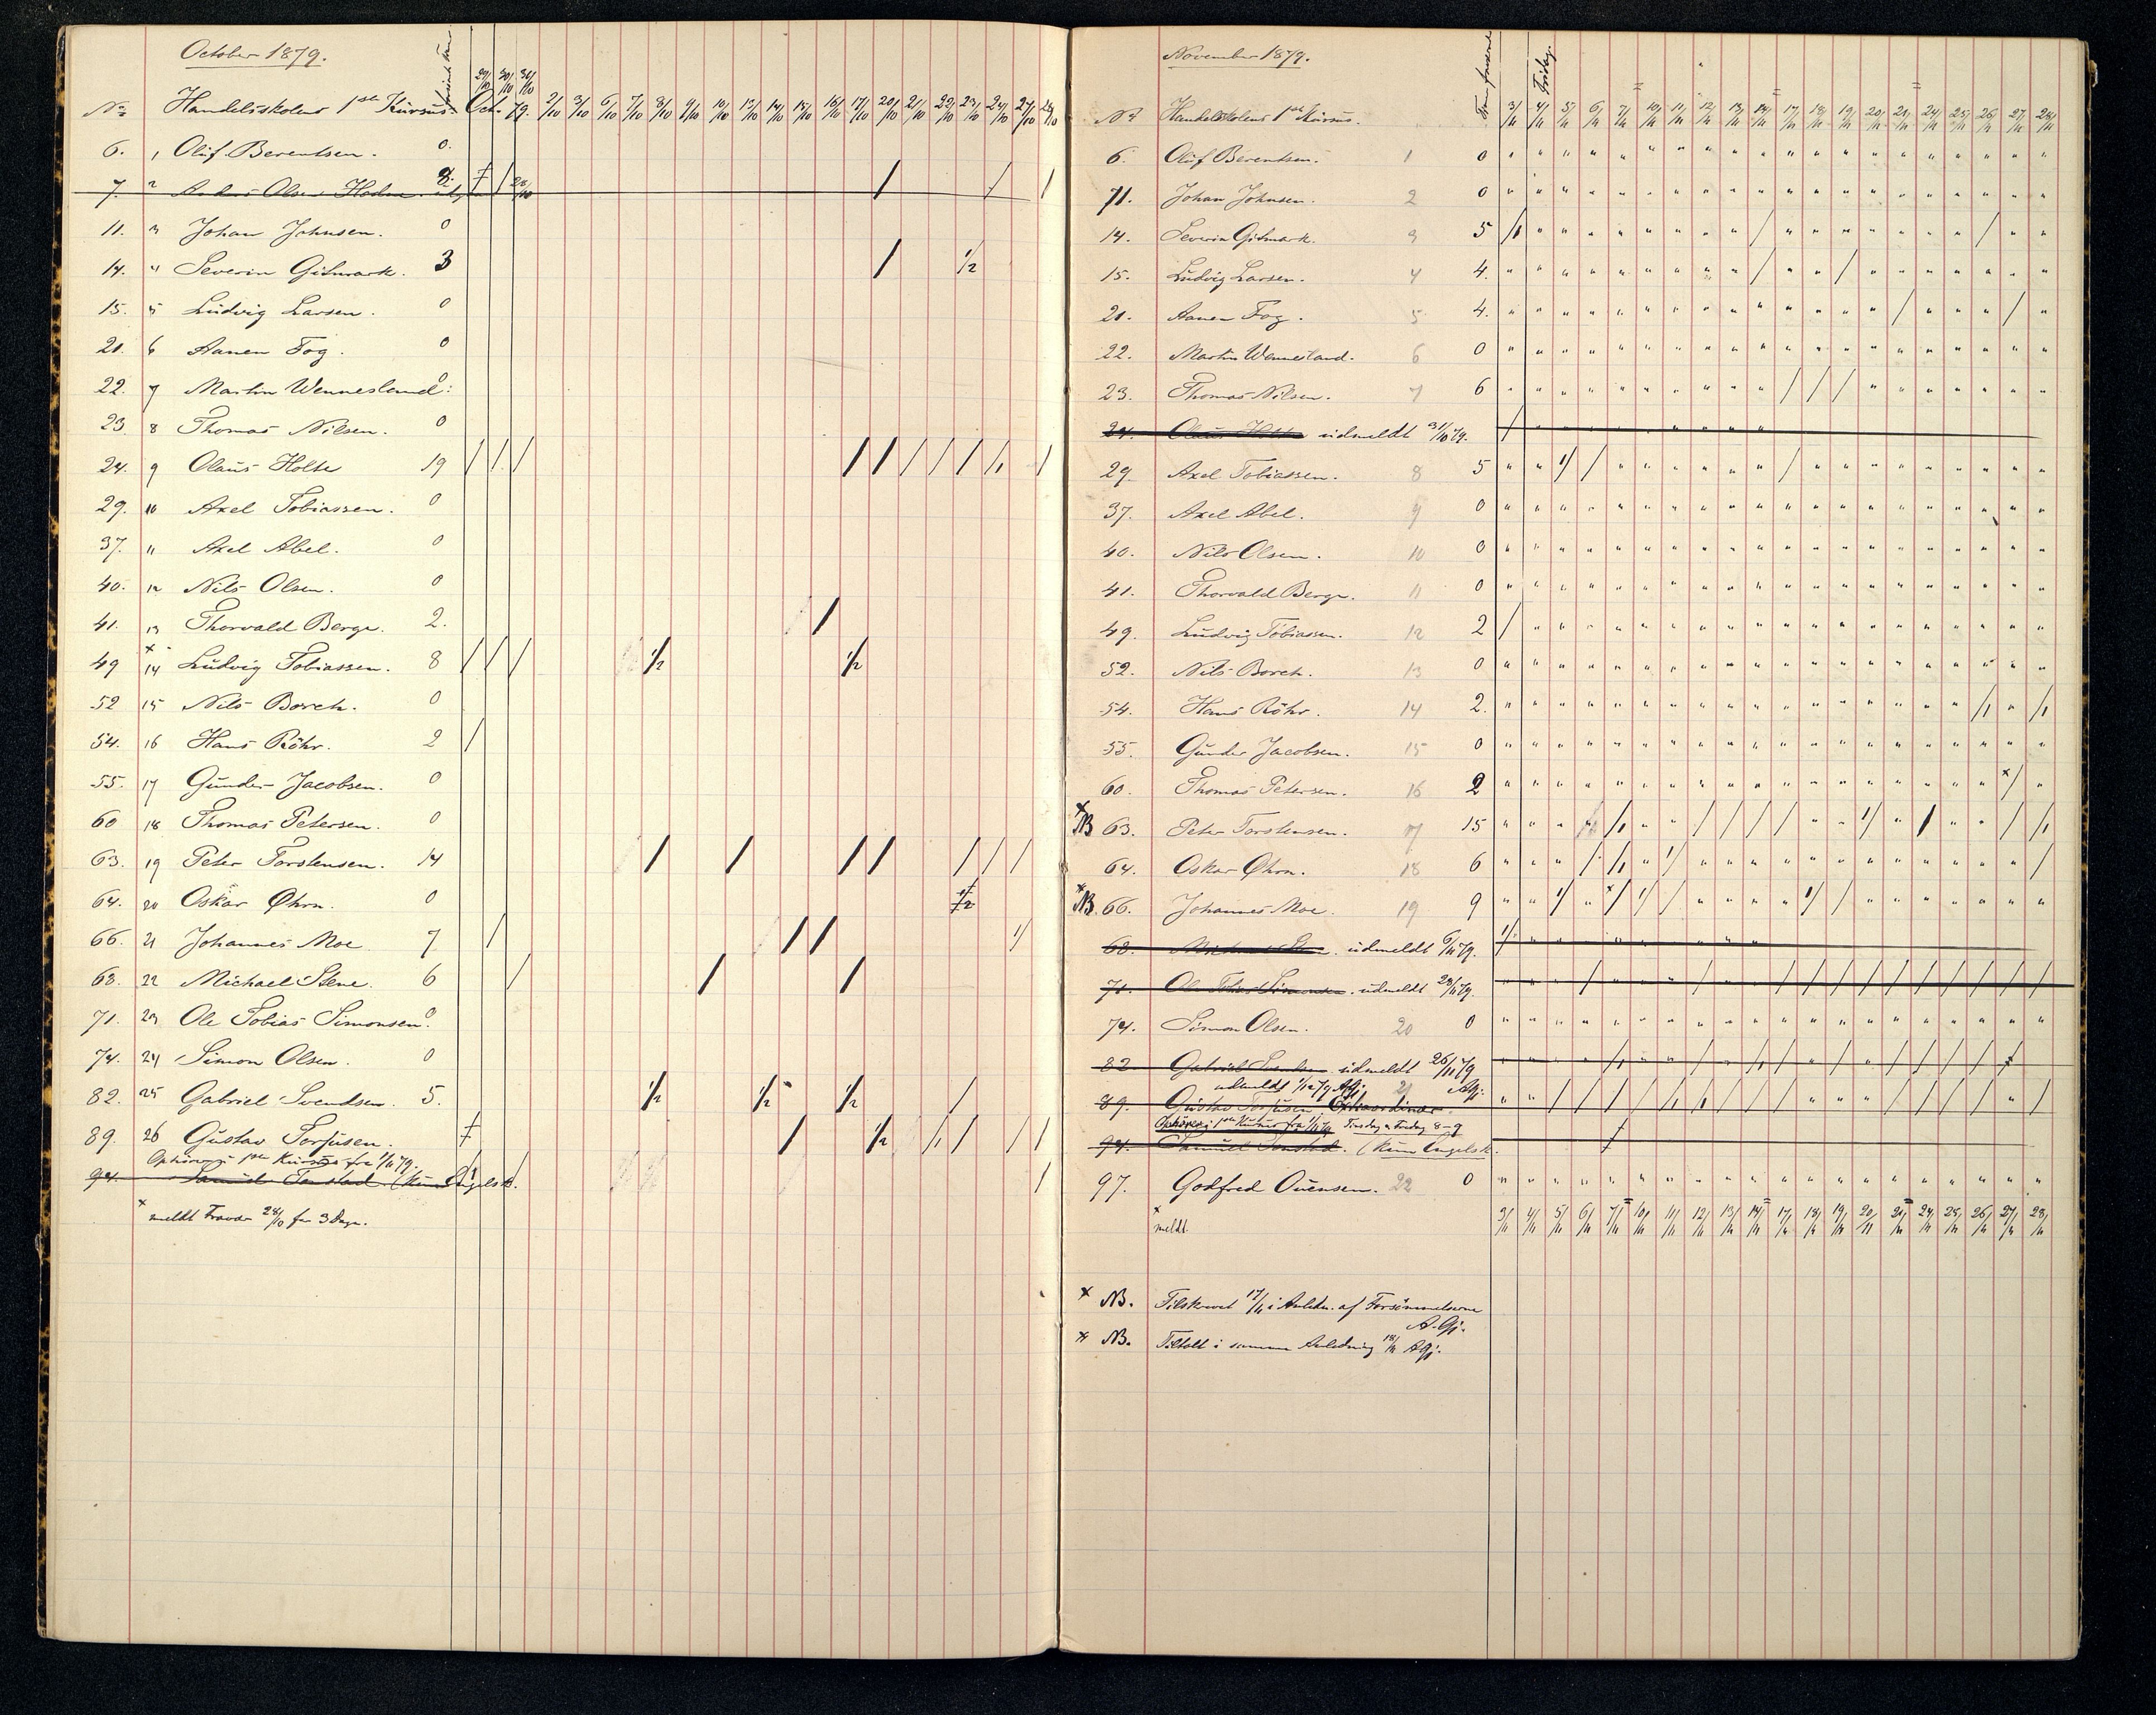 October 1879.
29/10 30/10 31/10
No Handelsskolens 1ste Kursus. Oct. 79. 2/10 3/10 6/10 7/10 8/10 9/10 10/10 13/10 14/10 15/10 16/10 17/10 20/10 21/10 22/10 23/10 24/10 27/10 28/10
6. 1 Oluf Berentsen. 0.
7. 2 Olsen 28/10
11. 3 Johan Johnsen. 0
14. 4 Severin Gitmark. 3 / 1/2
15. 5 Ludvig Larsen. 0
21. 6 Aanen Fog. 0
22. 7 Martin Wennesland. 0
23. 8 Thomas Nilsen. 0
24. 9 Olaus Holte 19 / / / / / / / / / /
29. 10 Axel Tobiassen. 0
37. 11 Axel Abel. 0
40. 12 Nils Olsen. 0
41. 13 Thorvald Berge. 2. /
49 14 × Ludvig Tobiassen. 8 / / / 1/2 1/2
52 15 Nils Borch. 0
54. 16 Hans Röhr. 2 /
55. 17 Gunder Jacobsen. 0
60 18 Thomas Petersen. 0
63. 19 Peter Torstensen. 14 / / / / / / /
64. 20 Oskar Øhrn. 0 1/2
66. 21 Johannes Moe 7 / / / 1/
68. 22 Michael Stene. 6 / / /
71. 23 Ole Tobias Simonsen. 0
74. 24 Simon Olsen. 0
82. 25 Gabriel Svendsen. 5. 1/2 1/2 1/2 /
89. 26 Gustav Torjusen. / 1/2 / / / /
Ophörer i 1ste Kursus fra 1/11 79.
94. Samuel Tonstad (kun Engelsk.
× meldt Fravær 28/10 for 3 Dage.
November 1879.
Fredag.
No Handelsskolens 1ste Kursus. 3/11 4/11 5/11 6/11 7/11 10/11 11/11 12/11 13/11 14/11 17/11 18/11 19/11 20/11 21/11 24/11 25/11 26/11 27/11 28/11
6. Oluf Berentsen. 1 0
11. Johan Johnsen. 2 0
14. Severin Gitmark. 3 5
15. Ludvig Larsen. 4 4.
21. Aanen Fog. 5 4.
22. Martin Wennesland. 6 0
23. Thomas Nilsen. 7 6
24. Olaus Holte udmeldt 31/10 79.
29. Axel Tobiassen. 8 5
37. Axel Abel. 9 0
40. Nils Olsen. 10 0
41. Thorvald Berge. 11 0
49. Ludvig Tobiassen. 12 2
52. Nils Borch. 13 0
54. Hans Röhr. 14 2.
55. Gunder Jacobsen. 15 0
60. Thomas Petersen. 16 2
× NB 63. Peter Torstensen. 17 15
64. Oskar Øhrn. 18 6
× NB. 66. Johannes Moe. 19 9
68. udmeldt 6/11 79.
71. Ole Tobias Simonsen. udmeldt 29/11 79.
74. Simon Olsen. 20 0
82. Gabriel Svendsen udmeldt 26/11 79
udmeldt 1/12 79 AGj. 21 AGj.
89. Gustav Torjusen. Extraordinær
Ophörer i 1ste Kursus fra 1/11 79 Tirsdag & Fredag 8-9
94. Samuel Tonstad. (kun Engelsk.
97. Godfred Ouensen. 22 0
× meldt. 3/11 4/11 5/11 6/11 7/11 10/11 11/11 12/11 13/11 14/11 17/11 18/11 19/11 20/11 21/11 24/11 25/11 26/11 27/11 28/11
× NB. Tilskrevet 17/11 i Anledn. af Forsömmelserne
A.Gj.
× NB. Tiltalt i samme Anledning 18/11 AGj.